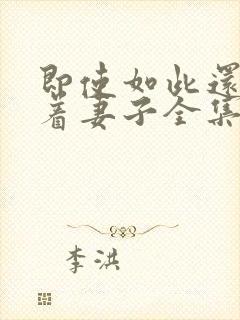 即使如此還
着妻子全集
李洪